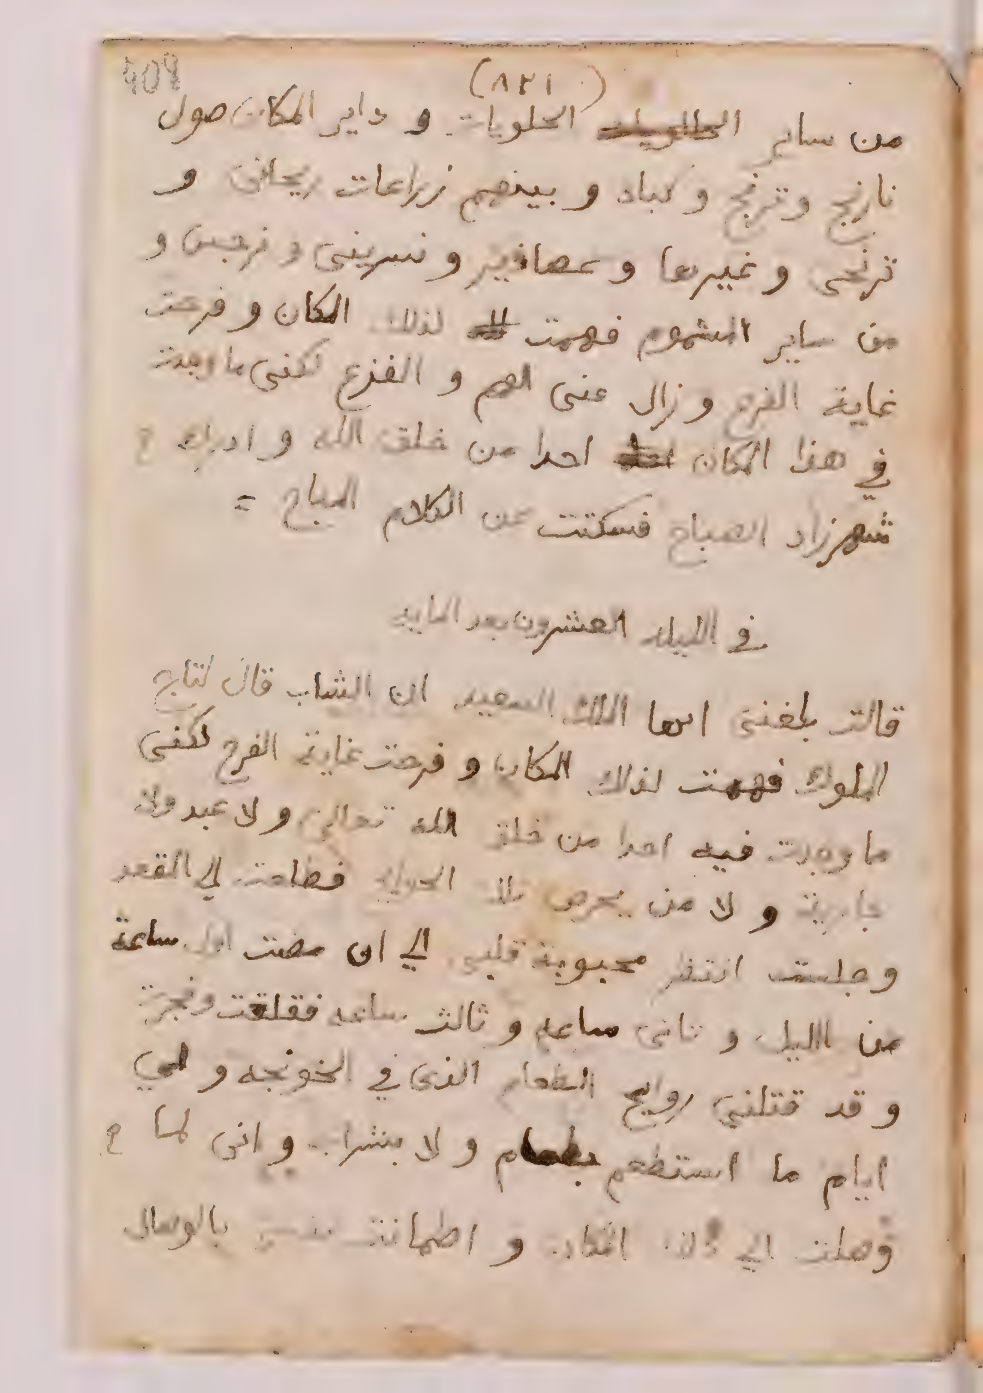 409
(٨٢١)
من ساير الحلويات و داير المكان صول
نارنج و ترنج و كباد و بينهم زراعات ريحانى و
ترنجى و غيرها و عصافير و نسرينى و نرجس و
من ساير المشموم فهمت لذلك المكان و فرحت
غاية الفرح و زال عنى الهم و الفزع لكنى ما وجدت
في هذا المكان احدا من خلق الله و ادرك
شهرزاد الصباح فسكتت عن الكلام المباح =
في الليلة العشرون بعد المايه
قالت بلغنى ايها الملك السعيد ان الشاب قال لتاج
الملوك فهمت لذلك المكان و فرحت غاية الفرح لكنى
ما وجدت فيه احدا من خلق الله تعالى و لا عبد ولا
جارية و لا من يحرص تلك الحوايج فطلعت الي المقعد
و جلست انتظر محبوبة قلبى الي ان مضت اول ساعة
من الليل و تانى ساعه و ثالث ساعه فقلقت وفجرت
و قد قتلنى روايح الطعام الذى في الخونجه و لى
ايام ما استطعم بطعام و لا بشراب و انى لما
وصلت الي المكان و اطمانت نفسى بالوصال